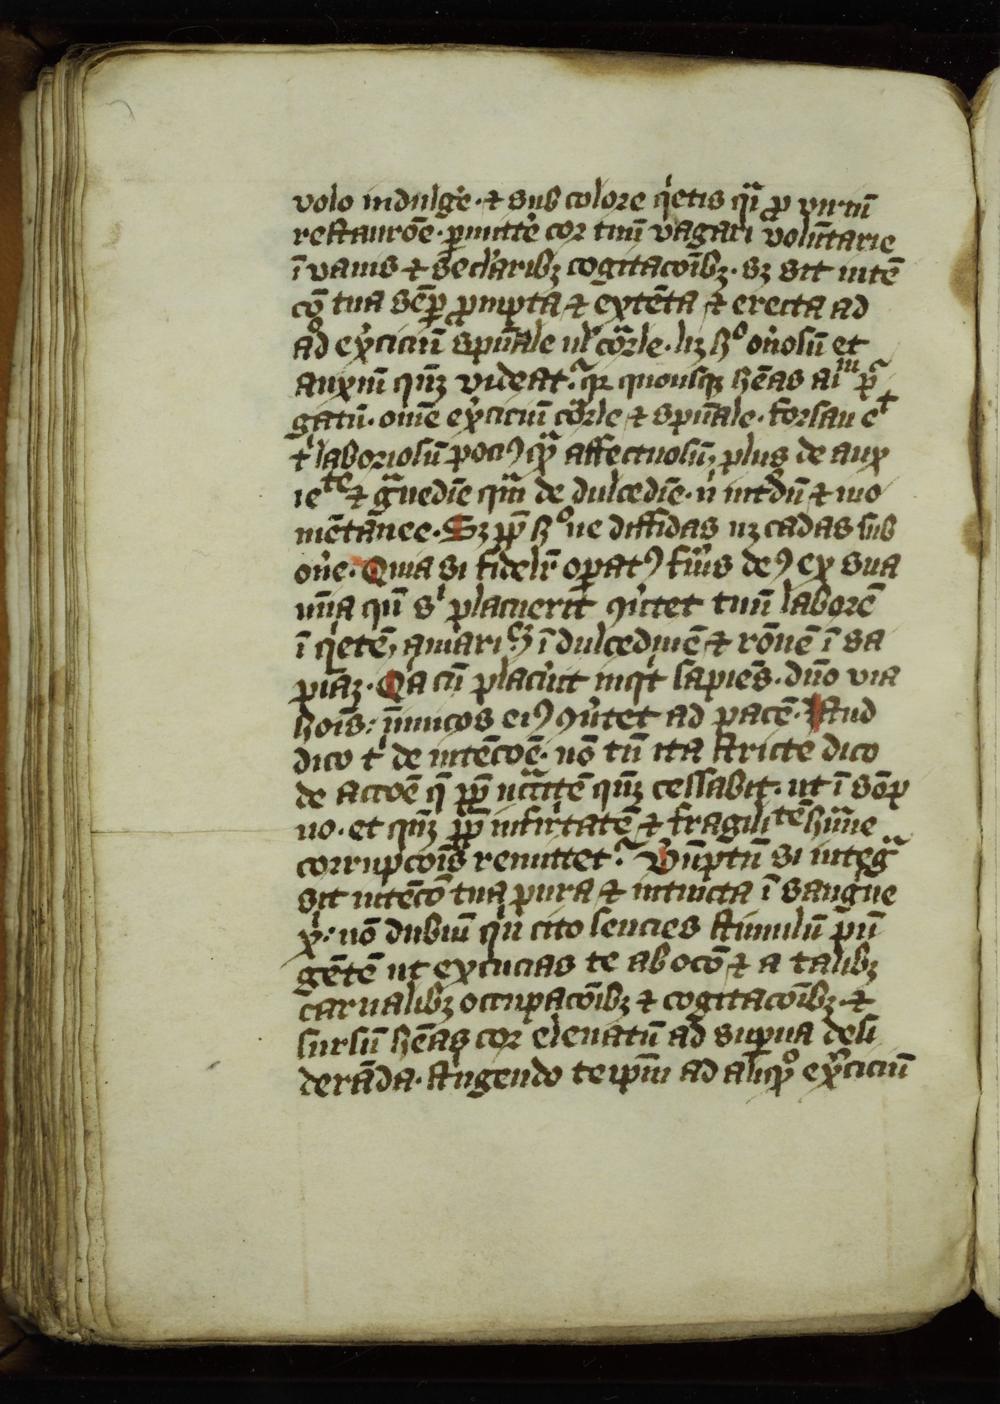 volo indulge᷒· ⁊ sub colore qͥetis qᷓi ꝓ virtū
restaurōe· ꝑmitte᷒ cor tuū vagari volūtarie
ī vanis ⁊ sec̄laribꝫ cogitacōibꝫ· sꝫ sit intē
cō tua sēꝑ ꝓmpta ⁊ extēta ⁊ erecta ad
ad exͨiciū spūale ul̓ corꝑle· lꝫ hͦ on̓osū et
anxiū qn̄ꝫ videat᷑ qꝛ quousqꝫ hēas aīm pᷓ
gatū· omē exͨiciū corꝑle ⁊ spūale· forsan eᵗ
t̓ laboriosū poci9 qᷓ affectuosū, plus de anx
ieᵗᵉ ⁊ gᷓuedīe qᷓm de dulcedīe· n̓ int̓dū ⁊ mo
mētanee· Sꝫ ꝓp̄ hͦ ne diffidas nꝫ cadas sub
on̓e· Quia si fidelr̄ oꝑat9 fūis de9 ex sua
mīa qn̄ sͥ placuerit 9ūtet tuū laborē
ī qͥetē, amari ī dulcedinē ⁊ rōnē ī sa
piāꝫ· Qa cū placūit inqͥt sapiēs· dn̄o via
hoīs: inimicos ei9 9ūtet ad pacē· Istud
dico t̓ de intēcōē· nō tn̄ ita stricte dico
de acciōē q̄ ꝓp̄ nccītatē qn̄ꝫ cessabit· ut ī sōp
no· et qn̄ꝫ ꝓp̄ infir̄tatē ⁊ fragiliᵗᵉ̄ hūane
corrupcōis remittet᷑ Vn̄ptn̄ si integᷓ
sit intēcō tua pura ⁊ intincta ī sangue
xͥ· nō dubiū qn̄ cito sencies stimulū pū
gētē ut excucias te ab ocō ⁊ a talibꝫ
carnalibꝫ occupacōibꝫ ⁊ cogitacōibꝫ· ⁊
sursū hēas cor eleuatū ad suꝑna desi
derāda· stīgendo teip̄m ad aliqͦ exͨiciū